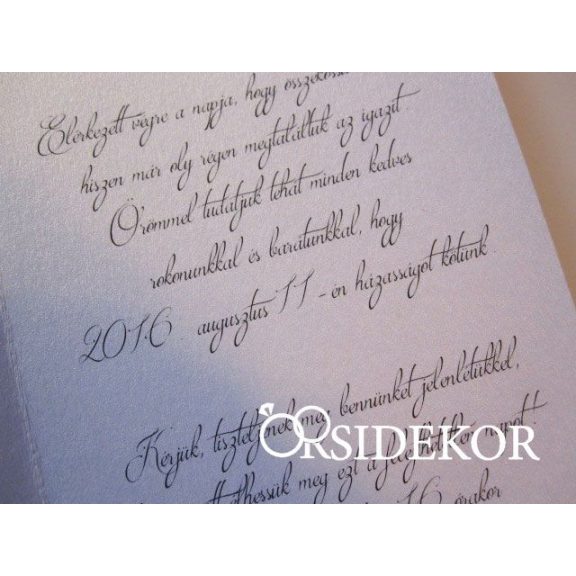 Elérkezett végre a napja, hogy
hiszen már oly régen megtaláltuk az igazit.
Örömmel tudatjuk tehát minden kedves
rokonunkkal és barátunkkal, hogy
2016 augusztus 11 - én házasságot kötünk.
Kérjük, meg bennünket jelenlétükkel,
ORSIDEKOR
meg ezt a napot!
16 órakor